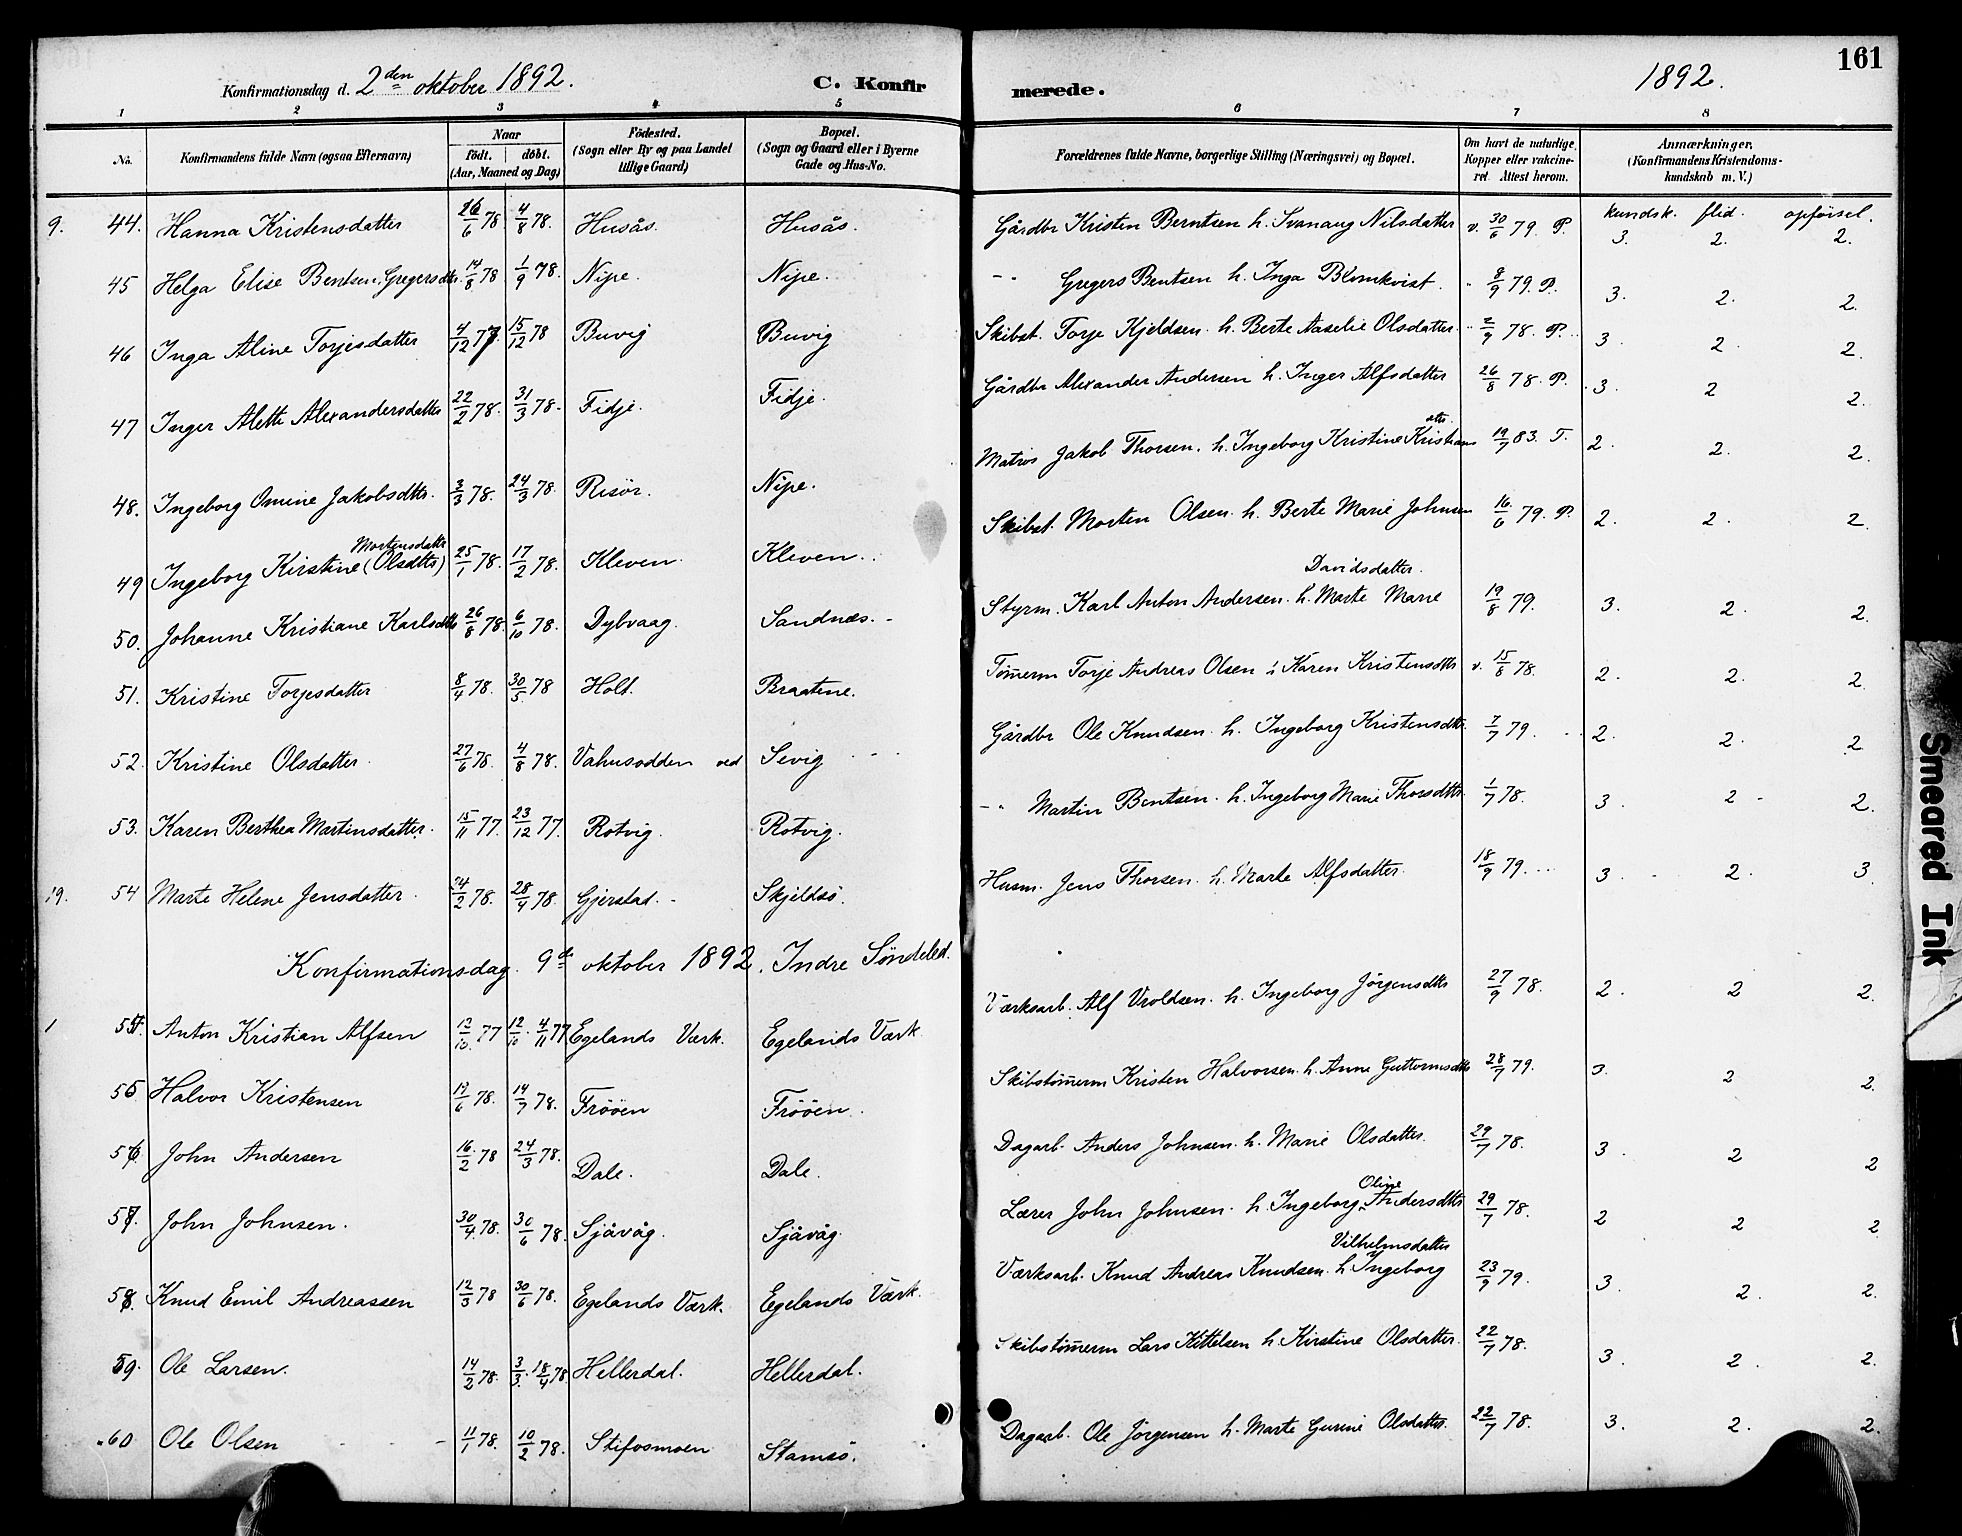 161
Konfirmationsdag d. 2den oktober 1892. C. Konfirmerede. 1892.
1 2 3 4 5 6 7 8
No. Konfirmandens fulde Navn (ogsaa Efternavn) Naar födt. döbt. (Aar, Maaned og Dag) Födested. (Sogn eller By og paa Landet tillige Gaard) Bopæl. (Sogn og Gaard eller i Byerne Gade og Hus-No. Forældrenes fulde Navne, borgerlige Stilling (Næringsvei) og Bopæl. Om havt de naturlige Kopper eller vakcineret. Attest herom. Anmærkninger. (Konfirmandens Kristendomskundskab m. V.)
kundsk. flid. opførsel.
9. 44. Hanna Kristensdatter 26/6 78 4/8 78. Husås. Husås. Gårdbr Kristen Berntsen h. Svanaug Nilsdatter v. 30/6 79. P. 3. 2. 2.
45 Helga Elise Bentsen, Gregersdtr. 14/8 78 1/9 78. Nipe. Nipe. -"- Gregers Bentsen h. Inga Blomkvist. " 8/9 79. P. 3. 2. 2.
46 Inga Aline Torjesdatter 4/12 77. 15/12 78 Buvig Buvig Skibst. Torje Kjeldsen h. Berte Aaselie Olsdatter " 2/9 78. P. 3. 2. 2.
47 Inger Alette Alexandersdatter 22/2 78. 31/3 78. Fidje. Fidje. Gårdbr Alexander Andersen h. Inger Alfsdatter 26/8 78. P. 3. 2 2.
48. Ingeborg Omine Jakobsdtr. 3/3 78. 24/3 78. Risør. Nipe. Matros Jakob Thorsen. h. Ingeborg Kristine Kristiansdtr 19/7 83. T. 2. 2. 2.
49 Ingeborg Kirstine (Olsdtr) Mortensdatter 25/1 78. 17/2 78. Kleven. Kleven. Skibst. Morten Olsen. h. Berte Marie Johnsen 16/6 79. P. 2. 2. 2.
50. Johanne Kristiane Karlsdtr 26/8 78. 6/10 78. Dybvaag. Sandnæs. Styrm. Karl Anton Andersen. h. Marte Marie Davidsdatter. 19/8 79. 3. 2. 2.
51. Kristine Torjesdatter 8/4 78. 30/5 78 Holt. Braatene. Tømerm Torje Andreas Olsen h. Karen Kristensdtr v. 15/8 78. 2. 2. 2.
52. Kristine Olsdatter. 27/6 78. 4/8 78. Vahusodden ved Sevig Gårdbr Ole Knudsen. h. Ingeborg Kristensdtr. 7/7 79. 2. 2. 2
53. Karen Berthea Martinsdatter. 15/11 77. 23/12 77. Rotvig. Rotvig. -"- Martin Bentsen. h. Ingeborg Marie Thorsdtr. 1/7 78. 3. 2 2.
19. 54 Marte Helene Jensdatter. 24/2 78. 28/4 78. Gjerstad. Skjeldsö. Husm. Jens Thorsen. h. Marte Alfsdatter. 18/9 79. 3. 2. 3.
Konfirmationsdag. 9de oktober 1892. Indre Søndeled.
1 55. Anton Kristian Alfsen 12/10 77 12/10. 4/11 77 Egelands Værk. Egelands Værk Værksarb. Alf Vroldsen. h. Ingeborg Jörgensdtr 27/9 78. 2. 2 2.
55 Halvor Kristensen 12/6 78. 14/7 78. Frööen Frööen. Skibstömerm Kristen Halvorsen. h. Anne Guttormsdtr 28/7 79. 3. 2 2.
56 John Andersen 16/2 78 24/3 78. Dale. Dale. Dagarb. Anders Johnsen. h. Marie Olsdatter. 29/7 78. 3. 2 2
57. John Johnsen. 30/4 78. 30/6 78. Sjåvåg. Sjåvåg. Lærer John Johnsen. h. Ingeborg Oline Andersdtr 29/7 78. 2 2 2
58. Knud Emil Andreassen 12/3 78 30/6 78. Egelands Værk. Egelands Værk. Værksarb. Knud Andreas Knudsen. h. Ingeborg Vilhelmsdatter 23/9 79. 3. 2. 2.
59. Ole Larsen. 14/2 78. 3/3. 18/4 78 Hellerdal. Hellerdal. Skibstömerm Lars Kittelsen h. Kirstine Olsdatter. 22/7 78. 3. 2. 2.
60 Ole Olsen 11/1 78. 10/2 78. Stifosmoen Stamsö. Dagarb. Ole Jörgensen h. Marte Gurine Olsdatter. 22/7 78. 3. 2. 2.
Smeared Ink